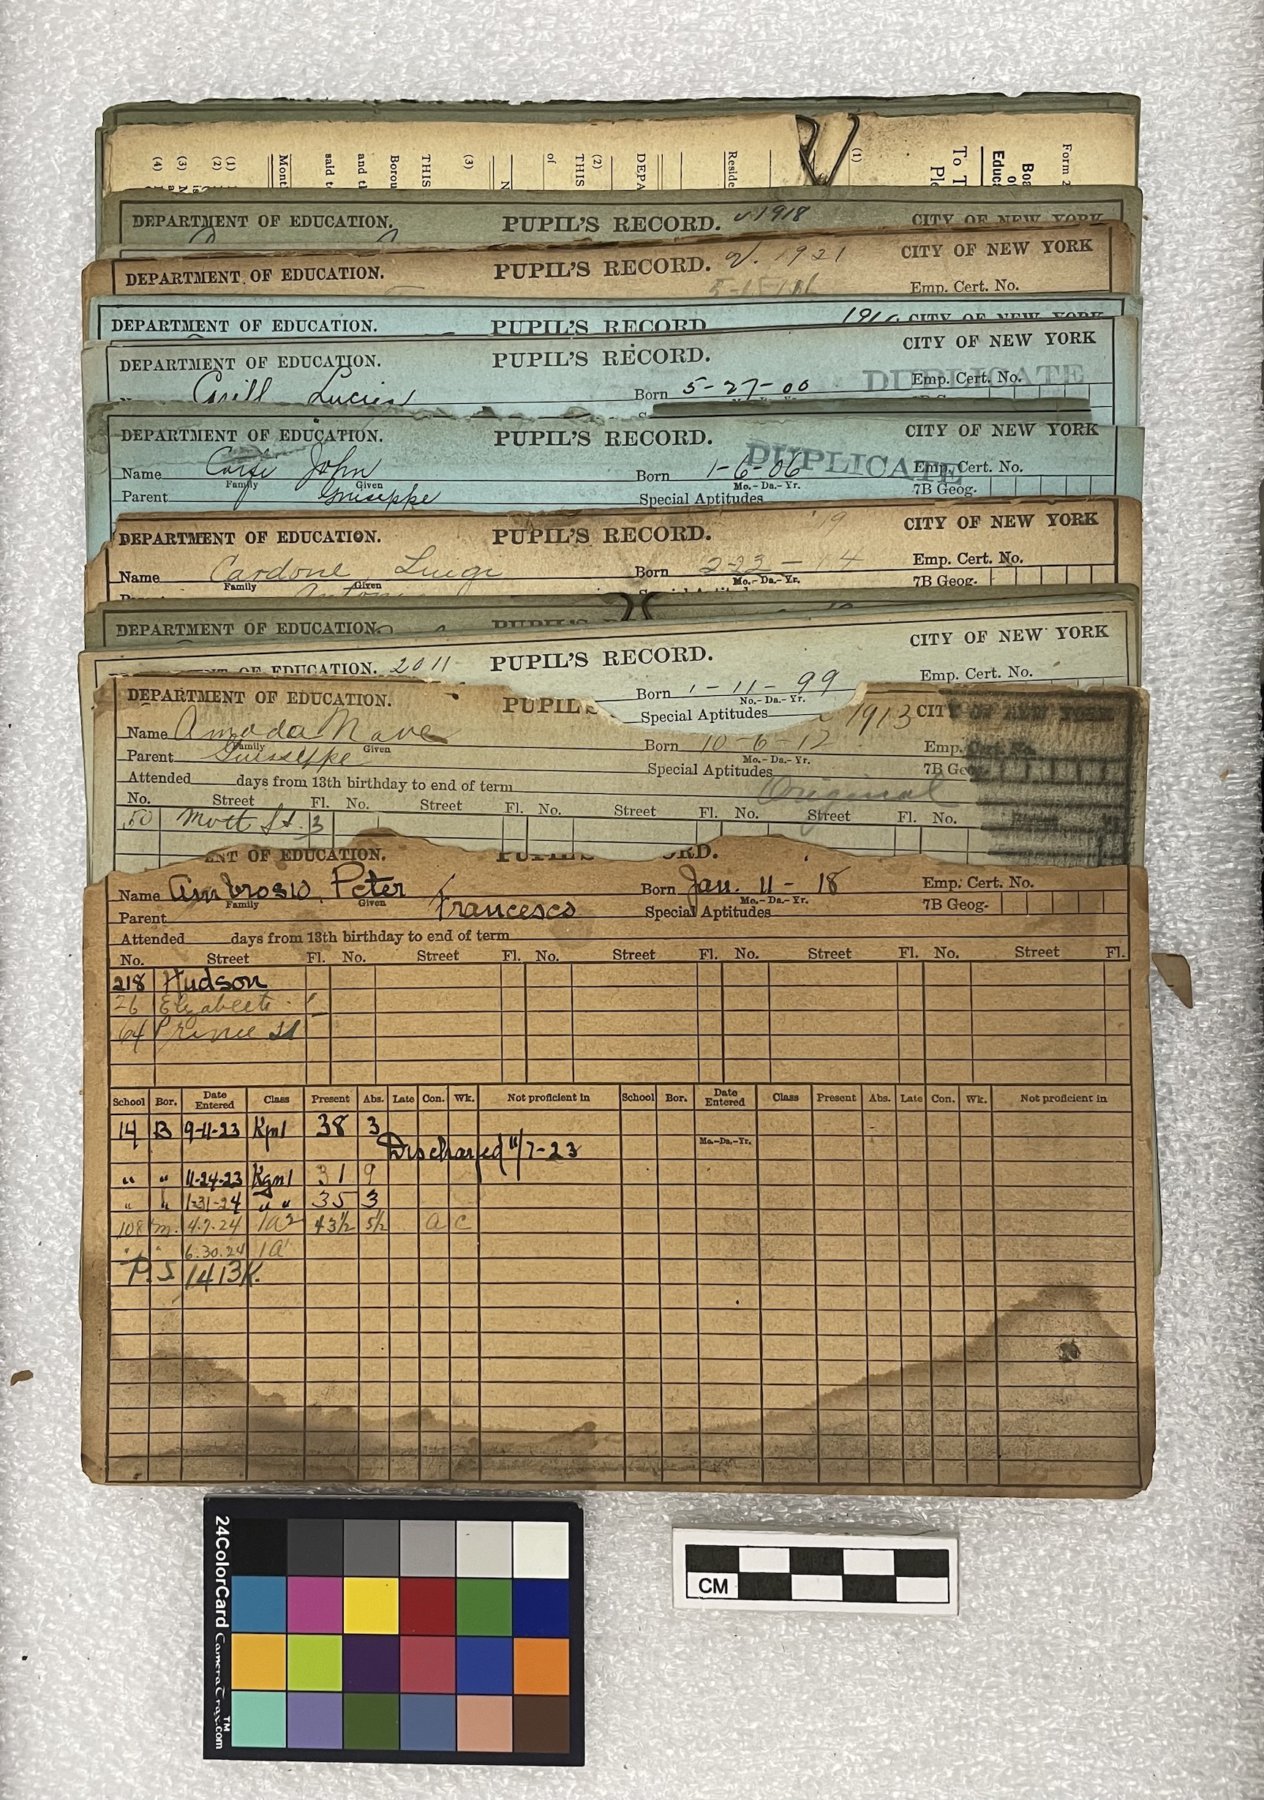 Form 2
Boa
of
Educa
To T
Ple
(1)
Reside
DEPA
(2)
THIS
of
N
(3)
THIS
Borou
and th
said to
Mont
(1)
(2)
(3)
(4)
DEPARTMENT OF EDUCATION. PUPIL'S RECORD. v. 1918 CITY OF NEW YORK
DEPARTMENT OF EDUCATION. PUPIL'S RECORD. v. 1921 CITY OF NEW YORK
Emp. Cert. No.
DEPARTMENT OF EDUCATION. PUPIL'S RECORD CITY OF NEW YORK
DEPARTMENT OF EDUCATION. PUPIL'S RECORD. CITY OF NEW YORK
Lucien Born 5-27-00 Emp. Cert. No. DUPLICATE
DEPARTMENT OF EDUCATION. PUPIL'S RECORD. CITY OF NEW YORK
Name Corse John Born 1-6-06 DUPLICATE Emp. Cert. No.
Family Given Mo.-Da.-Yr.
Parent Guiseppe Special Aptitudes 7B Geog.
DEPARTMENT OF EDUCATION. PUPIL'S RECORD. CITY OF NEW YORK
Name Cardone Luigi Born 2-23-14 Emp. Cert. No.
Family Given Mo.-Da.-Yr. 7B Geog.
DEPARTMENT OF EDUCATION.
EDUCATION. 2011 PUPIL'S RECORD. CITY OF NEW YORK
Born 1-11-99 Emp. Cert. No.
Mo.-Da.-Yr.
Special Aptitudes
DEPARTMENT OF EDUCATION. PUPIL'S 1913 CITY OF NEW YORK
Name Born 10-6-12 Emp. Cert. No.
Family Given Mo.-Da.-Yr.
Parent Guisseppe Special Aptitudes 7B Geog.
Attended days from 13th birthday to end of term Original
No. Street Fl. No. Street Fl. No. Street Fl. No.
50 Mott St. 3
ENT OF EDUCATION. PUPIL'S RECORD.
Name Ambrosio, Peter Born Jan. 11-18 Emp. Cert. No.
Family Given Mo.-Da.-Yr.
Parent Francesco Special Aptitudes 7B Geog.
Attended days from 13th birthday to end of term
No. Street Fl. No. Street Fl. No. Street Fl. No. Street Fl.
218 Hudson
26 Elizabeth
64 Prince St
School Bor. Date Entered Class Present Abs. Late Con. Wk. Not proficient in School Bor. Date Entered Class Present Abs. Late Con. Wk. Not proficient in
14 B 9-11-23 Kgn1 38 3
Discharged 11/7-23 Mo.-Da.-Yr.
" " 11-24-23 Kgn1 31 9
" " 1-31-24 " " 35 3
108 M. 4.7.24 1A2 43½ 5½ a c
" " 6.30.24 1A'
P.S. 1413K.
24ColorCard CameraTrax.com ™
CM